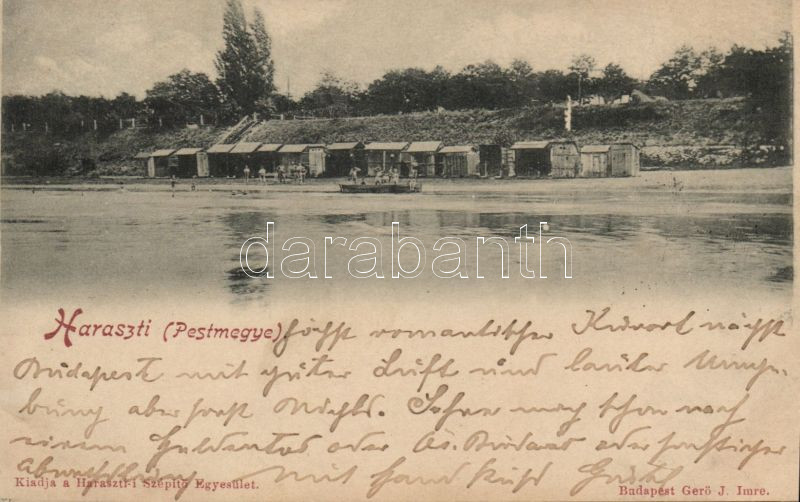 darabanth
Haraszti (Pestmegye) höchst romantischer Kurort nächst
Budapest mit guter Luft und lauter Umge-
bung aber sonst Nichts. Sehne mich schon nach
einem oder oder sonstiger
Abwechslung Mit Handkuß
Kiadja a Haraszti-i Szépitő Egyesület.
Budapest Gerő J. Imre.